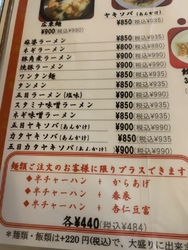 広東麺
¥900(税込¥990)
ヤキソバ(あんかけ)
¥850(税込¥935)
麻婆ラーメン ¥850(税込¥935)
ネギラーメン ¥850(税込¥935)
豚角煮ラーメン ¥900(税込¥990)
ワンタン麺 ¥850(税込¥935)
タンメン ¥850(税込¥935)
五目ラーメン(塩味) ¥900(税込¥990)
スタミナ味噌ラーメン ¥900(税込¥990)
ネギ味噌ラーメン ¥850(税込¥935)
五目ヤキソバ(あんかけ) ¥900(税込¥990)
カタヤキソバ(あんかけ) ¥850(税込¥935)
五目カタヤキソバ(あんかけ) ¥900(税込¥990)
麺類ご注文のお客様に限りプラスできます
◆半チャーハン + からあげ
◆半チャーハン + 春巻
◆半チャーハン + 杏仁豆腐
各¥440(税込¥484)
*麺類・飯類は+220円(税込)で、大盛りに出来